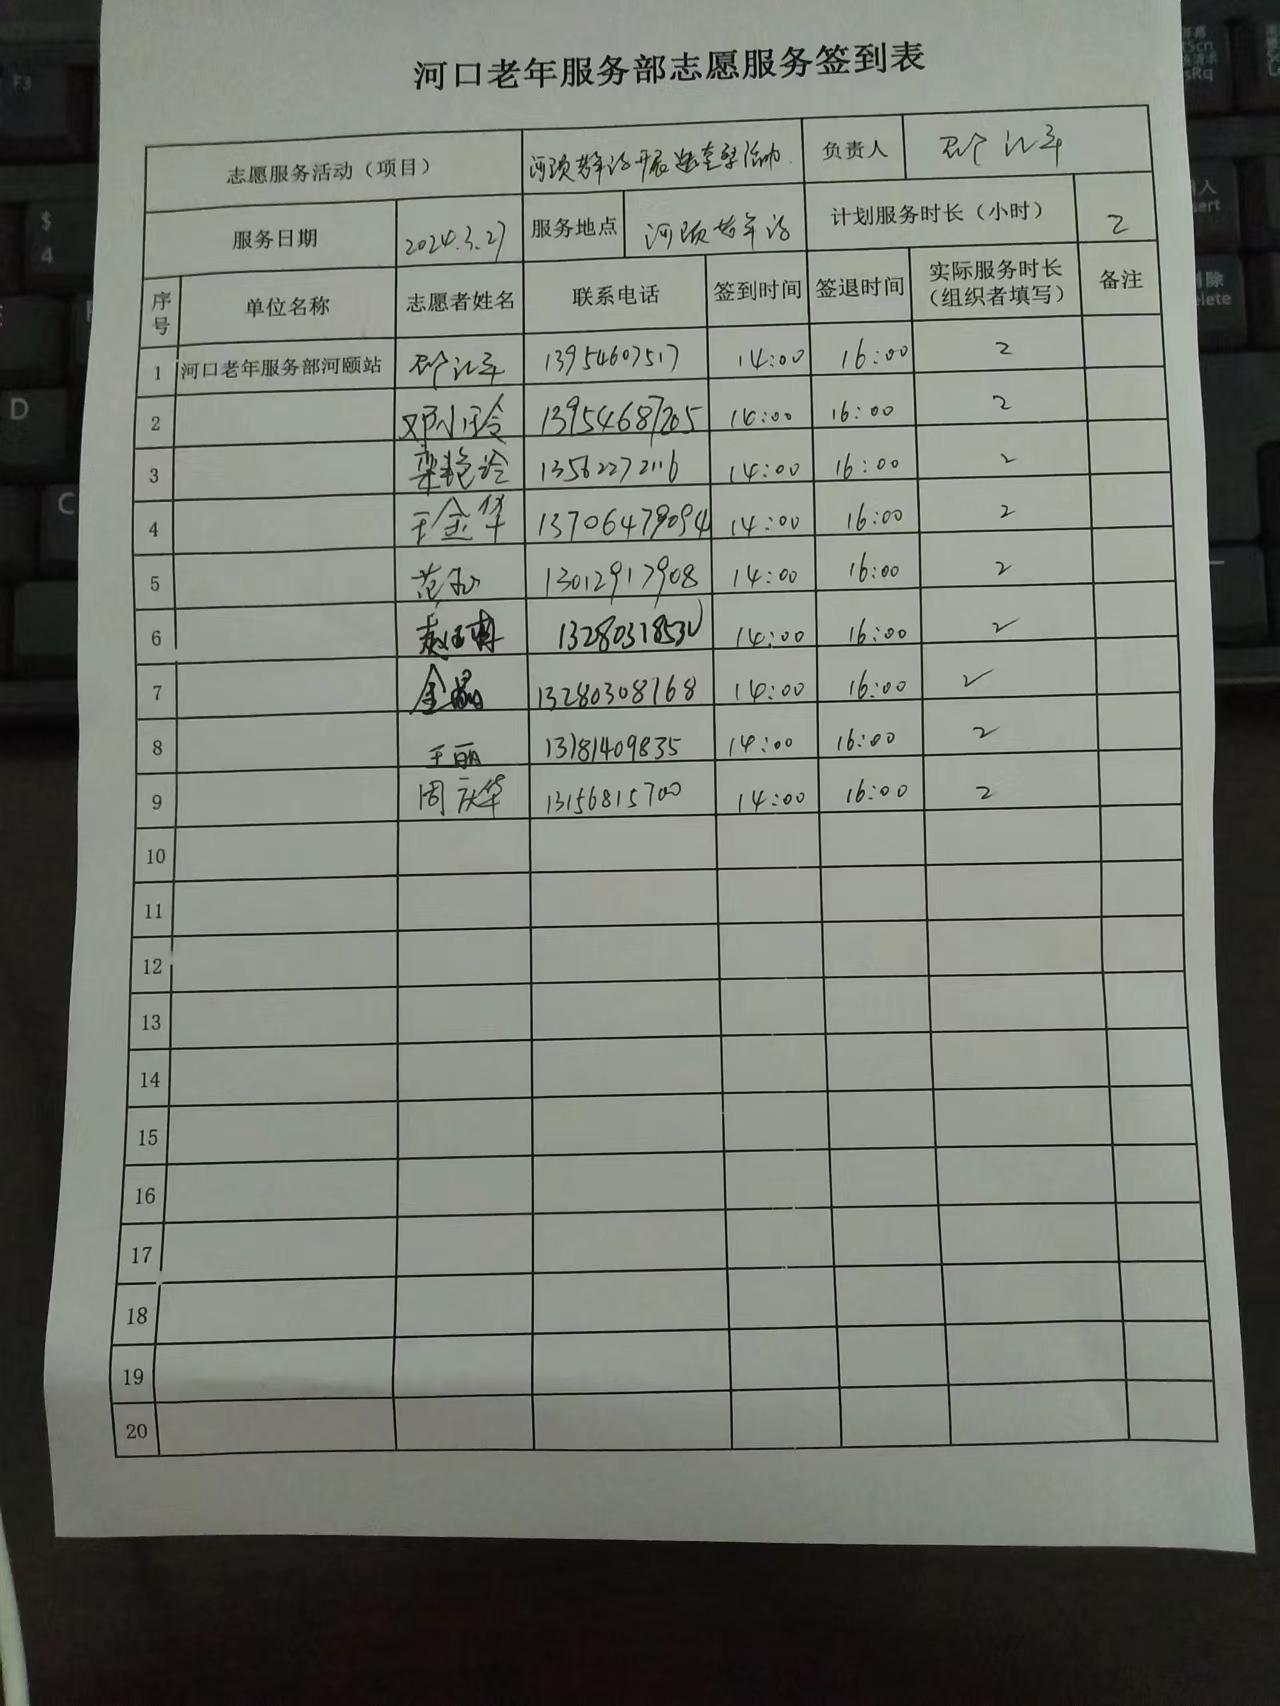 河口老年服务部志愿服务签到表
志愿服务活动（项目） 负责人
服务日期 2024.3.27 服务地点 河颐老年站 计划服务时长（小时） 2
序号 单位名称 志愿者姓名 联系电话 签到时间 签退时间 实际服务时长（组织者填写） 备注
1 河口老年服务部河颐站 13954607517 14:00 16:00 2
2 邓小玲 13954687205 14:00 16:00 2
3 栾艳玲 13562272116 14:00 16:00 2
4 王金华 14:00 16:00 2
5 13012917908 14:00 16:00 2
6 14:00 16:00 2
7 金晶 13280308168 14:00 16:00 2
8 王丽 13181409835 14:00 16:00 2
9 周庆华 13156815700 14:00 16:00 2
10
11
12
13
14
15
16
17
18
19
20